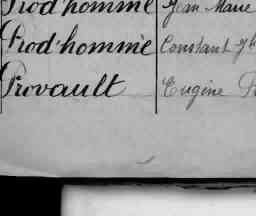 Prod'homme Jean Marie
Prod'homme Constant
Provault Eugène